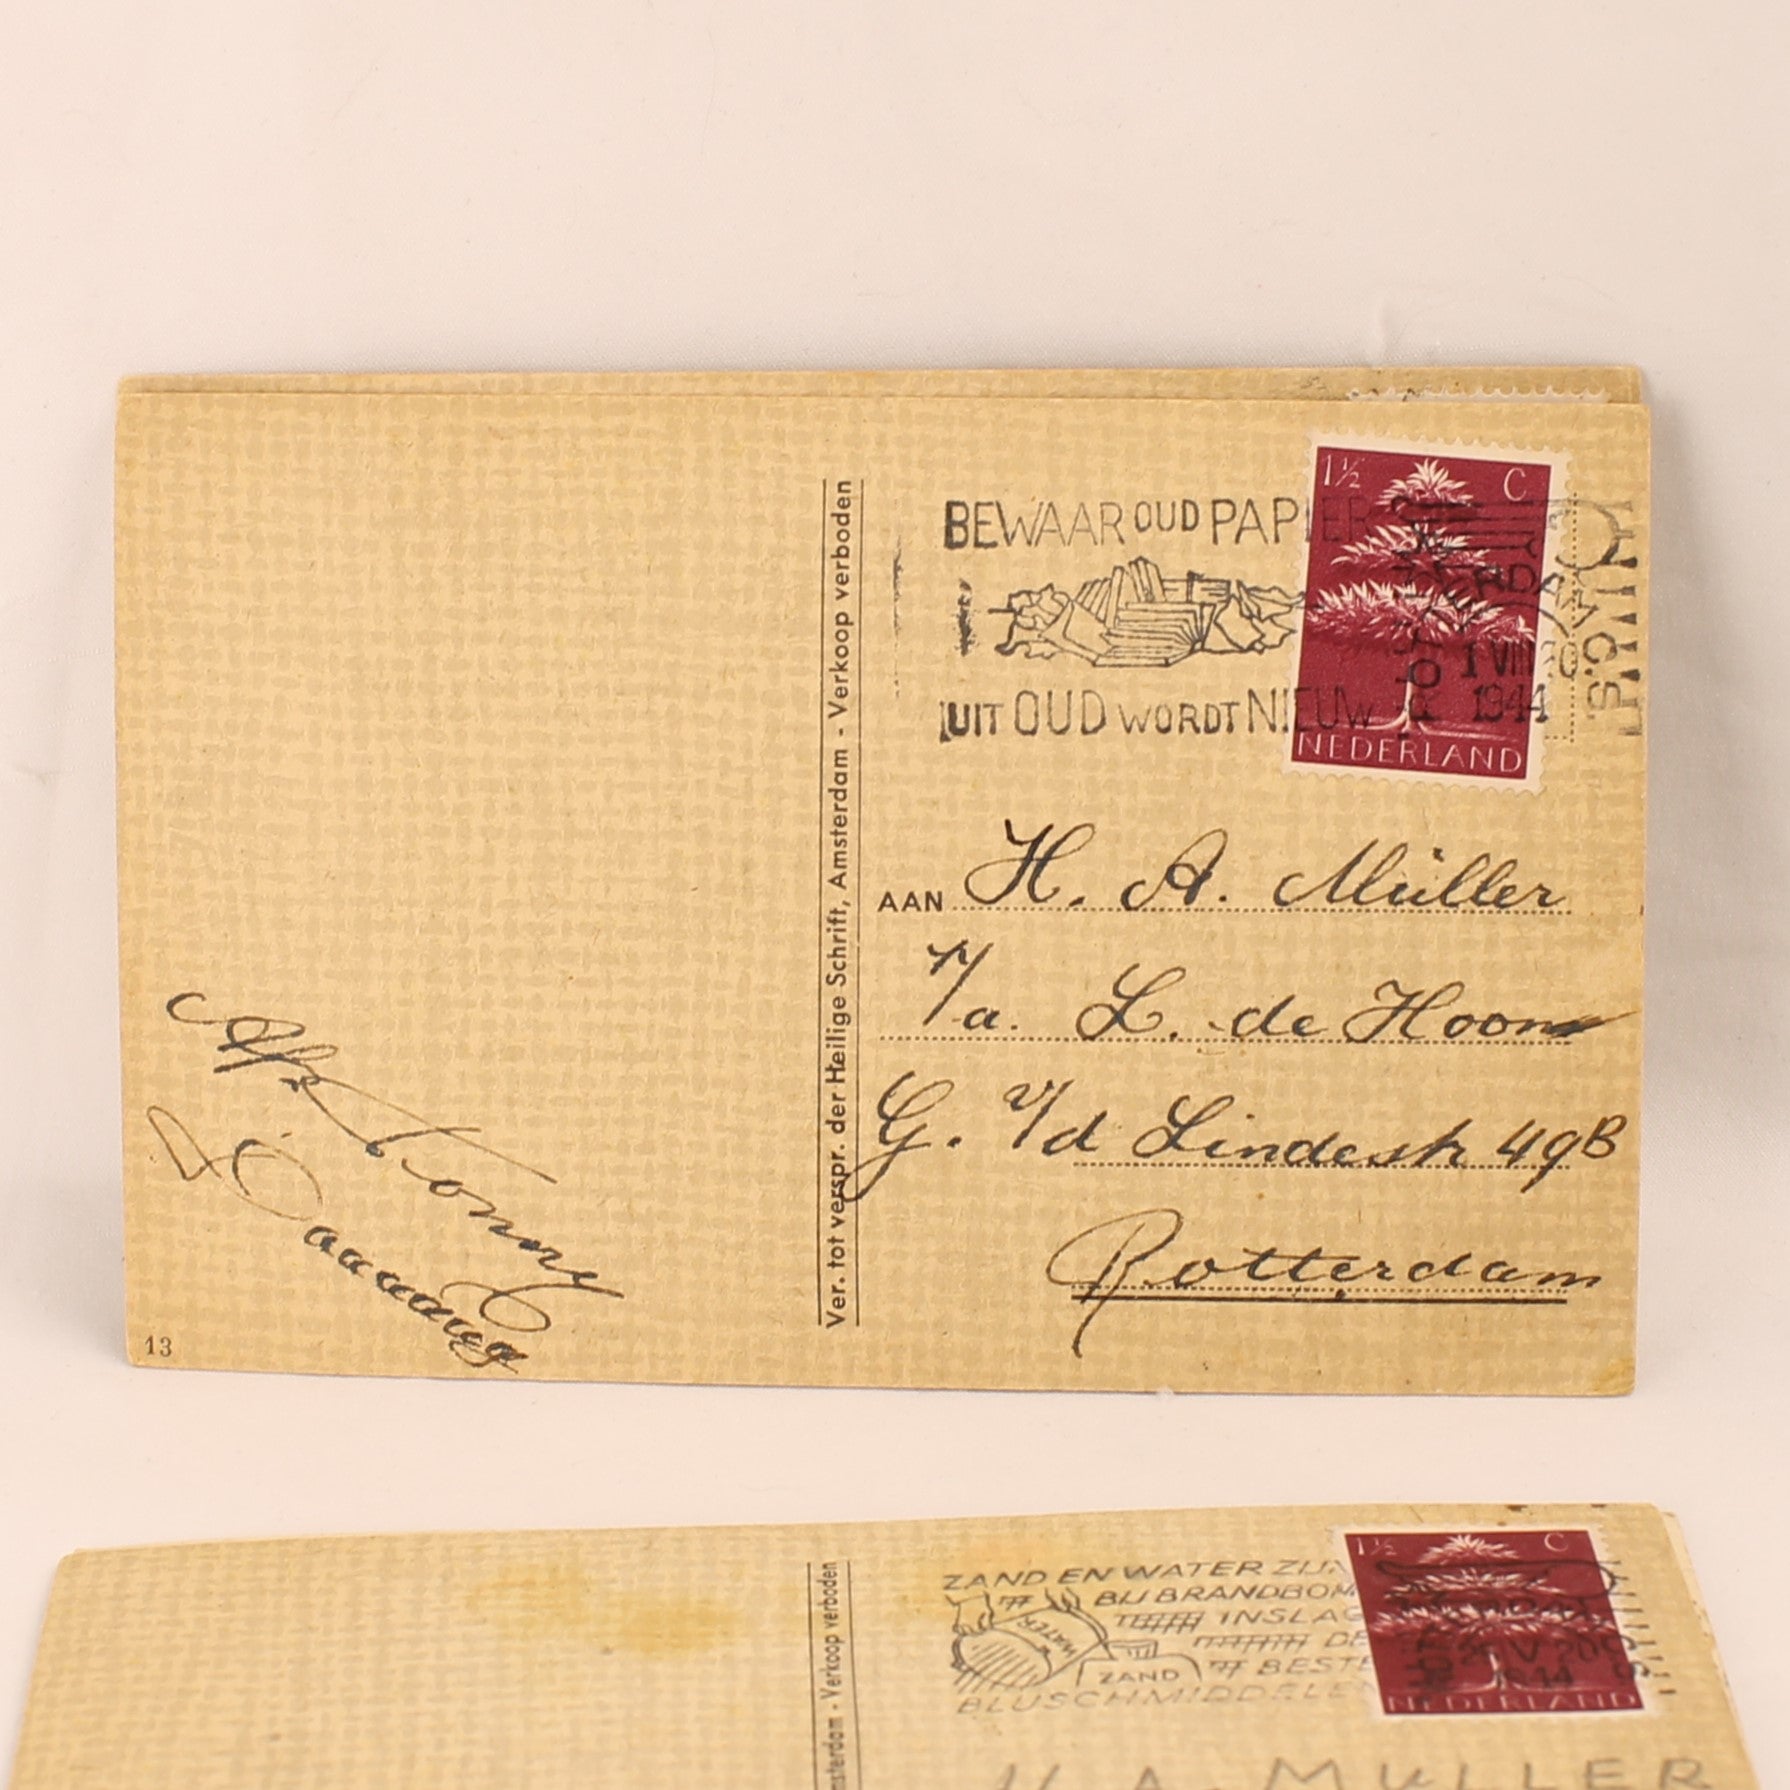 BEWAAR OUD PAPIER
UIT OUD WORDT NIEUW
1½ C
NEDERLAND
1 VIII 20
1944
Ver. tot verspr. der Heilige Schrift, Amsterdam - Verkoop verboden
AAN H. A. Müller
p/a. L. de Hoom
G. v/d Lindestr 49B
Rotterdam
Afz Conny
13
ZAND EN WATER ZIJN
BIJ BRANDBOM
INSLAG
DE
WATER
ZAND
BESTE
BLUSCHMIDDELEN
1½ C
NEDERLAND
1944
Amsterdam - Verkoop verboden
H. A. MULLER